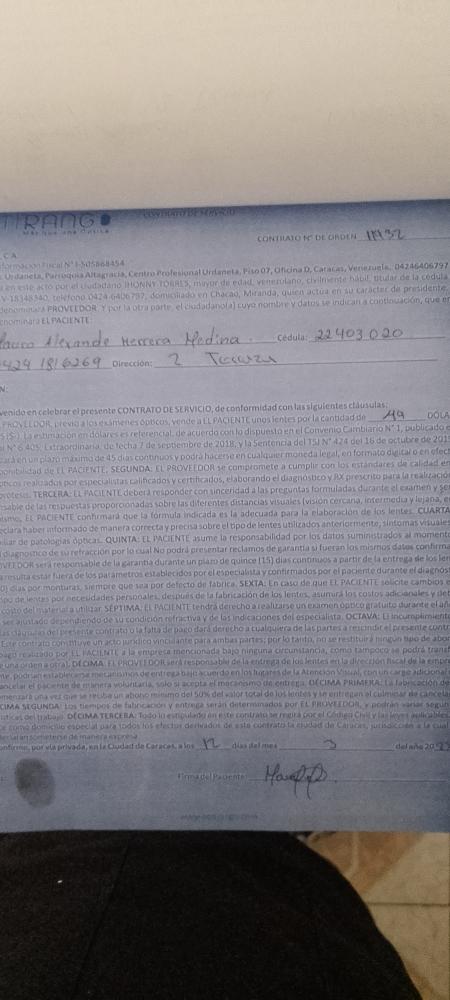 TIRANGO
Más que una Óptica
CONTRATO DE SERVICIO
CONTRATO Nº DE ORDEN
C.A.
formación Fiscal Nº J-505868454
Urdaneta, Parroquia Altagracia, Centro Profesional Urdaneta, Piso 07, Oficina D, Caracas, Venezuela, 04246406797
en este acto por el ciudadano JHONNY TORRES, mayor de edad, venezolano, civilmente hábil, titular de la cédula
V-18348340, teléfono 0424-6406797, domiciliado en Chacao, Miranda, quien actúa en su carácter de presidente,
denominará PROVEEDOR. Y por la otra parte, el ciudadano(a) cuyo nombre y datos se indican a continuación, que en
enominará EL PACIENTE:
Alexande Herrera Medina. Cédula: 22403020
0424 1816269 Dirección: 2
N:
venido en celebrar el presente CONTRATO DE SERVICIO, de conformidad con las siguientes cláusulas:
PROVEEDOR, previo a los exámenes ópticos, vende a EL PACIENTE unos lentes por la cantidad de DOLA
S ($). La estimación en dólares es referencial, de acuerdo con lo dispuesto en el Convenio Cambiario N° 1, publicado e
al N° 6.405, Extraordinaria, de fecha 7 de septiembre de 2018, y la Sentencia del TSJ N° 424 del 16 de octubre de 201
zará en un plazo máximo de 45 días continuos y podrá hacerse en cualquier moneda legal, en formato digital o en efect
ponibilidad de EL PACIENTE; SEGUNDA: EL PROVEEDOR se compromete a cumplir con los estándares de calidad en
pticos realizados por especialistas calificados y certificados, elaborando el diagnóstico y RX prescrito para la realización
protesis. TERCERA: EL PACIENTE deberá responder con sinceridad a las preguntas formuladas durante el examen y ser
sable de las respuestas proporcionadas sobre las diferentes distancias visuales (visión cercana, intermedia y lejana), e
ismo, EL PACIENTE confirmará que la fórmula indicada es la adecuada para la elaboración de los lentes. CUARTA
eclara haber informado de manera correcta y precisa sobre el tipo de lentes utilizados anteriormente, síntomas visuales
iliar de patologías ópticas. QUINTA: EL PACIENTE asume la responsabilidad por los datos suministrados al momento
diagnóstico de su refracción por lo cual No podrá presentar reclamos de garantía si fueran los mismos datos confirma
OVEEDOR será responsable de la garantía durante un plazo de quince (15) días continuos a partir de la entrega de los len
resulta estar fuera de los parámetros establecidos por el especialista y confirmados por el paciente durante el diagnós
0) días por monturas, siempre que sea por defecto de fábrica. SEXTA: En caso de que EL PACIENTE solicite cambios e
tipo de lentes por necesidades personales, después de la fabricación de los lentes, asumirá los costos adicionales y del
costo del material a utilizar. SÉPTIMA: EL PACIENTE tendrá derecho a realizarse un examen óptico gratuito durante el añ
ser ajustado dependiendo de su condición refractiva y de las indicaciones del especialista. OCTAVA: El incumplimiento
las cláusulas del presente contrato o la falta de pago dará derecho a cualquiera de las partes a rescindir el presente contr
Este contrato constituye un acto jurídico vinculante para ambas partes; por lo tanto, no se restituirá ningún tipo de abo
pago realizado por EL PACIENTE a la empresa mencionada bajo ninguna circunstancia, como tampoco se podrá transf
e una orden a otra). DÉCIMA: EL PROVEEDOR será responsable de la entrega de los lentes en la dirección fiscal de la empre
podrán establecerse mecanismos de entrega bajo acuerdo en los lugares de la Atención Visual, con un cargo adicional
ancelar el paciente de manera voluntaria, solo si acepta el mecanismo de entrega. DÉCIMA PRIMERA: La fabricación de
menzará una vez que se reciba un abono mínimo del 50% del valor total de los lentes y se entregan al culminar de cancela
CIMA SEGUNDA: Los tiempos de fabricación y entrega serán determinados por EL PROVEEDOR, y podrán variar según
sticas del trabajo. DÉCIMA TERCERA: Todo lo estipulado en este contrato se regirá por el Código Civil y las leyes aplicables
e como domicilio especial para todos los efectos derivados de este contrato la ciudad de Caracas, jurisdicción a la cual
declaran someterse de manera expresa.
onforme, por vía privada, en la Ciudad de Caracas, a los 12 días del mes 3 del año 20
Firma del Paciente: